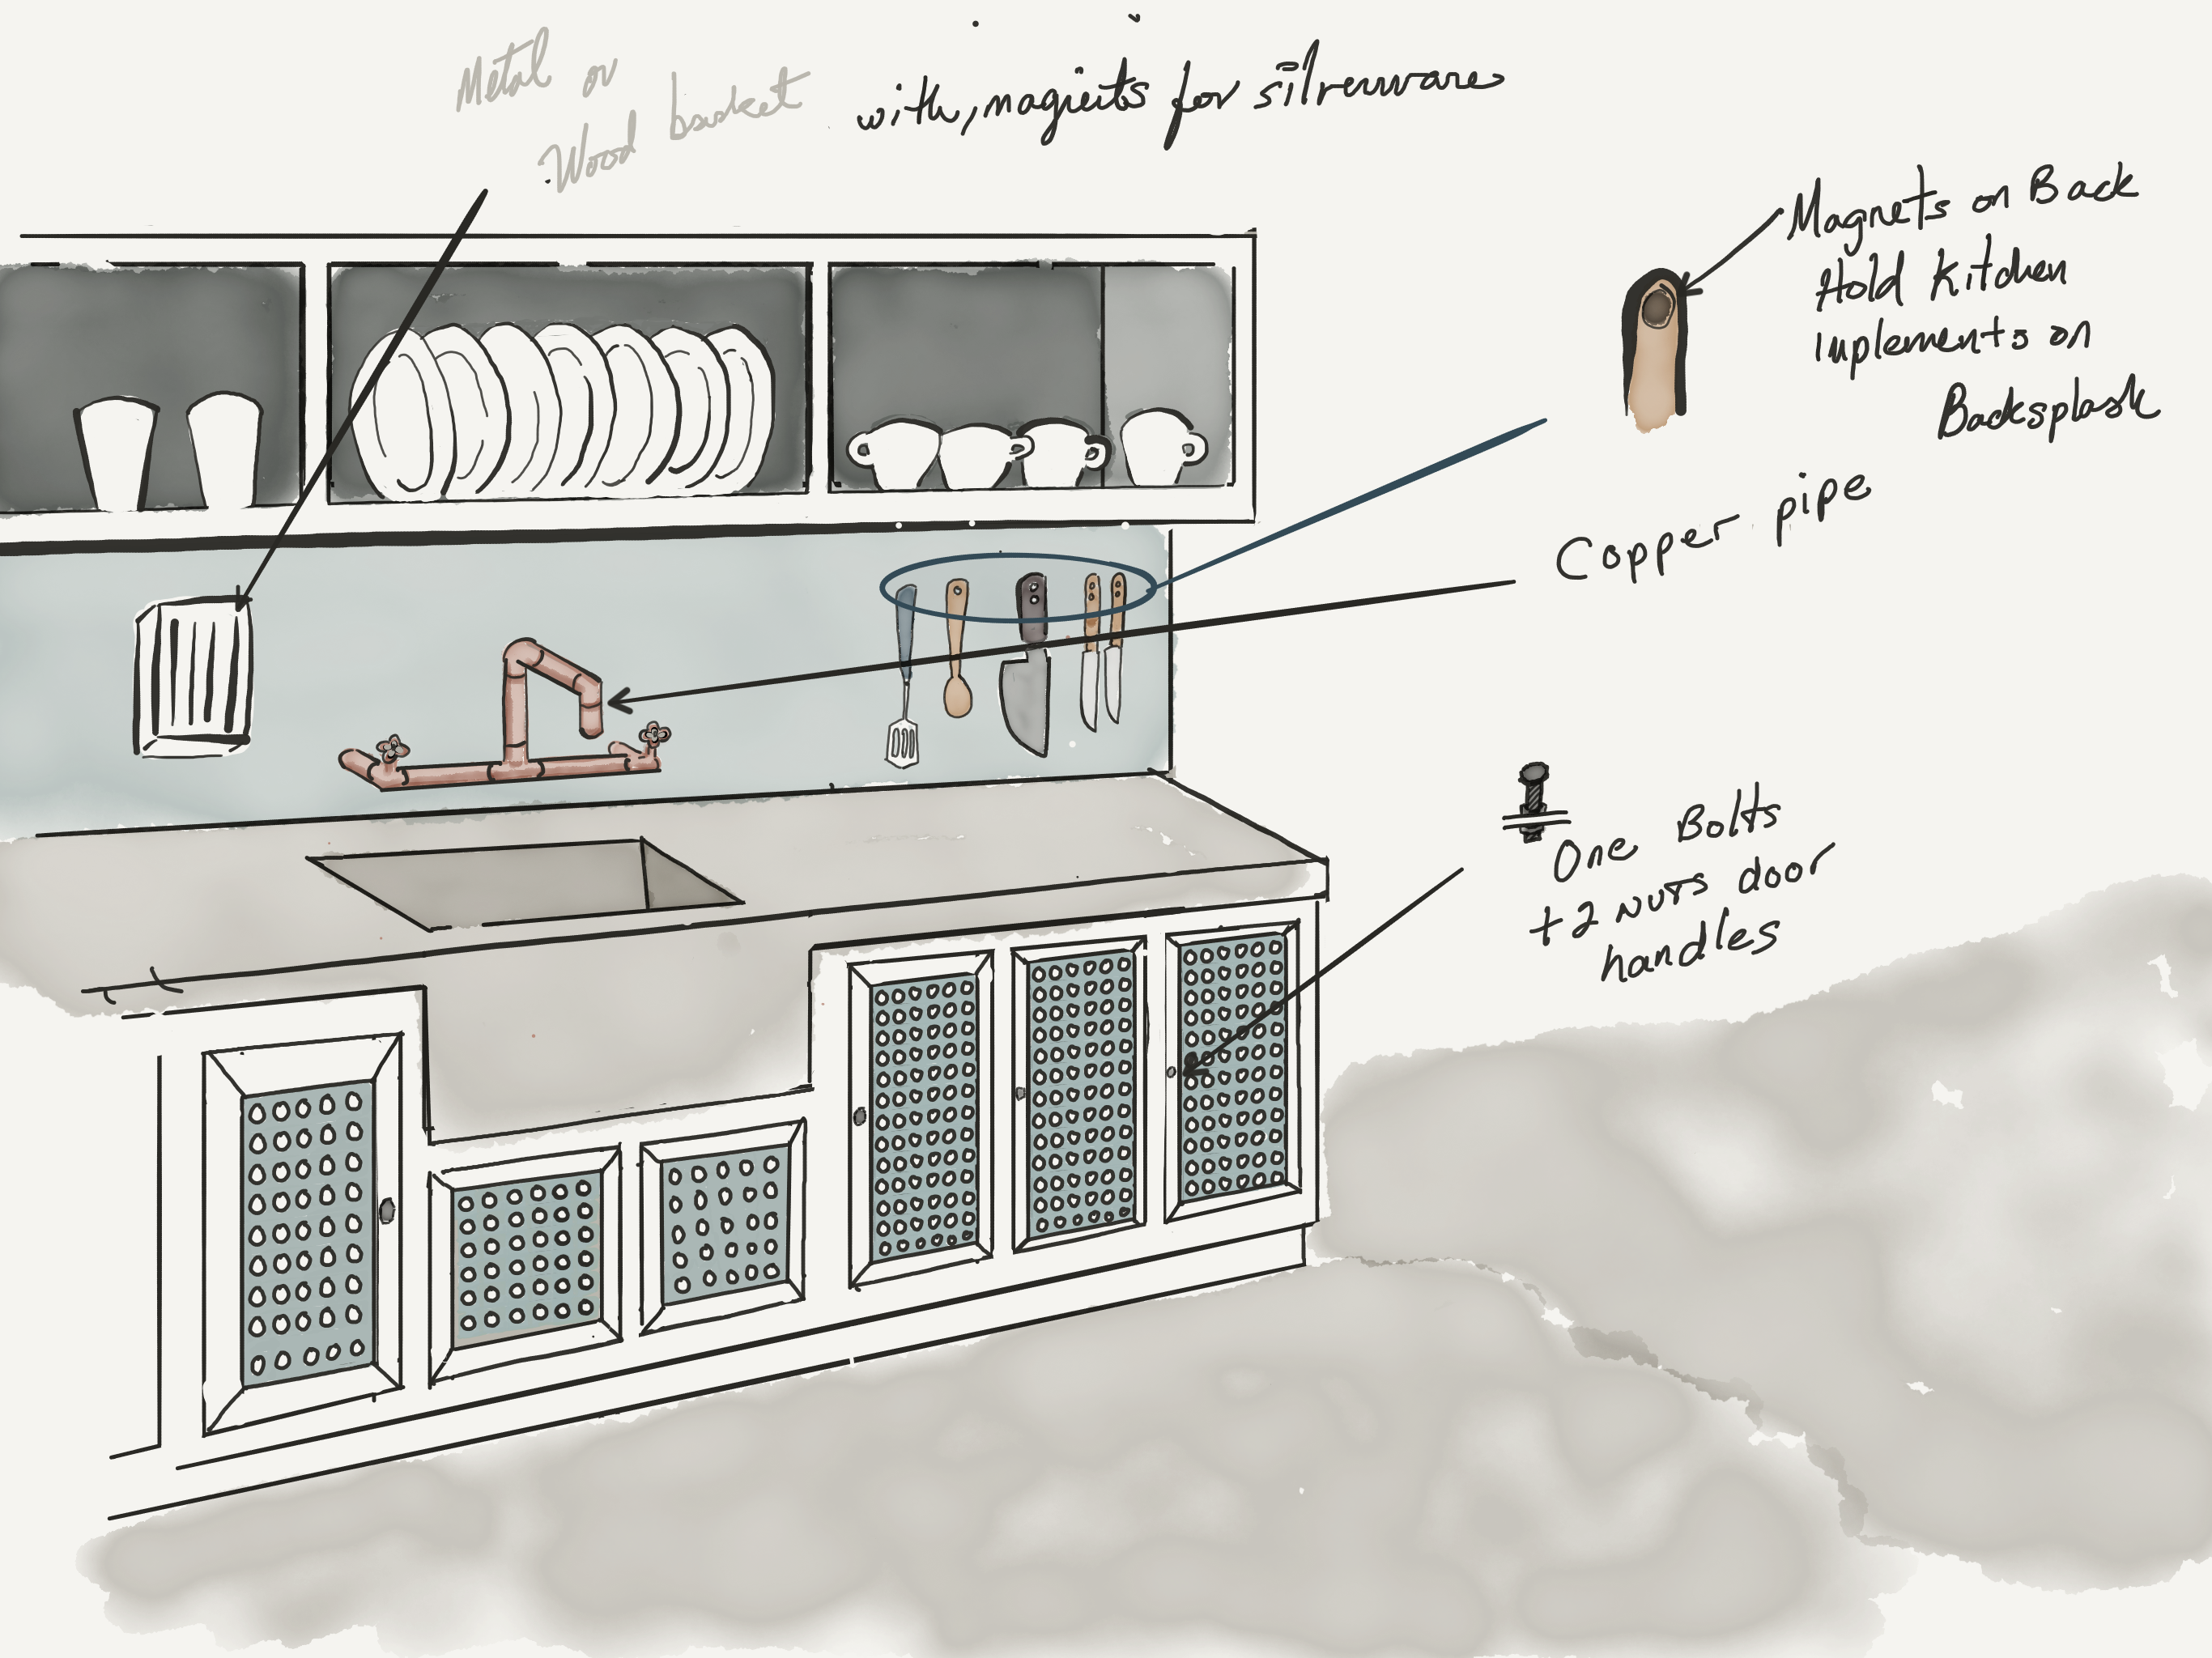 Metal or
Wood basket with, magnets for silverware
Magnets on Back
Hold Kitchen
Inplements on
Backsplash
Copper pipe
One Bolts
+2 NUTS door
handles